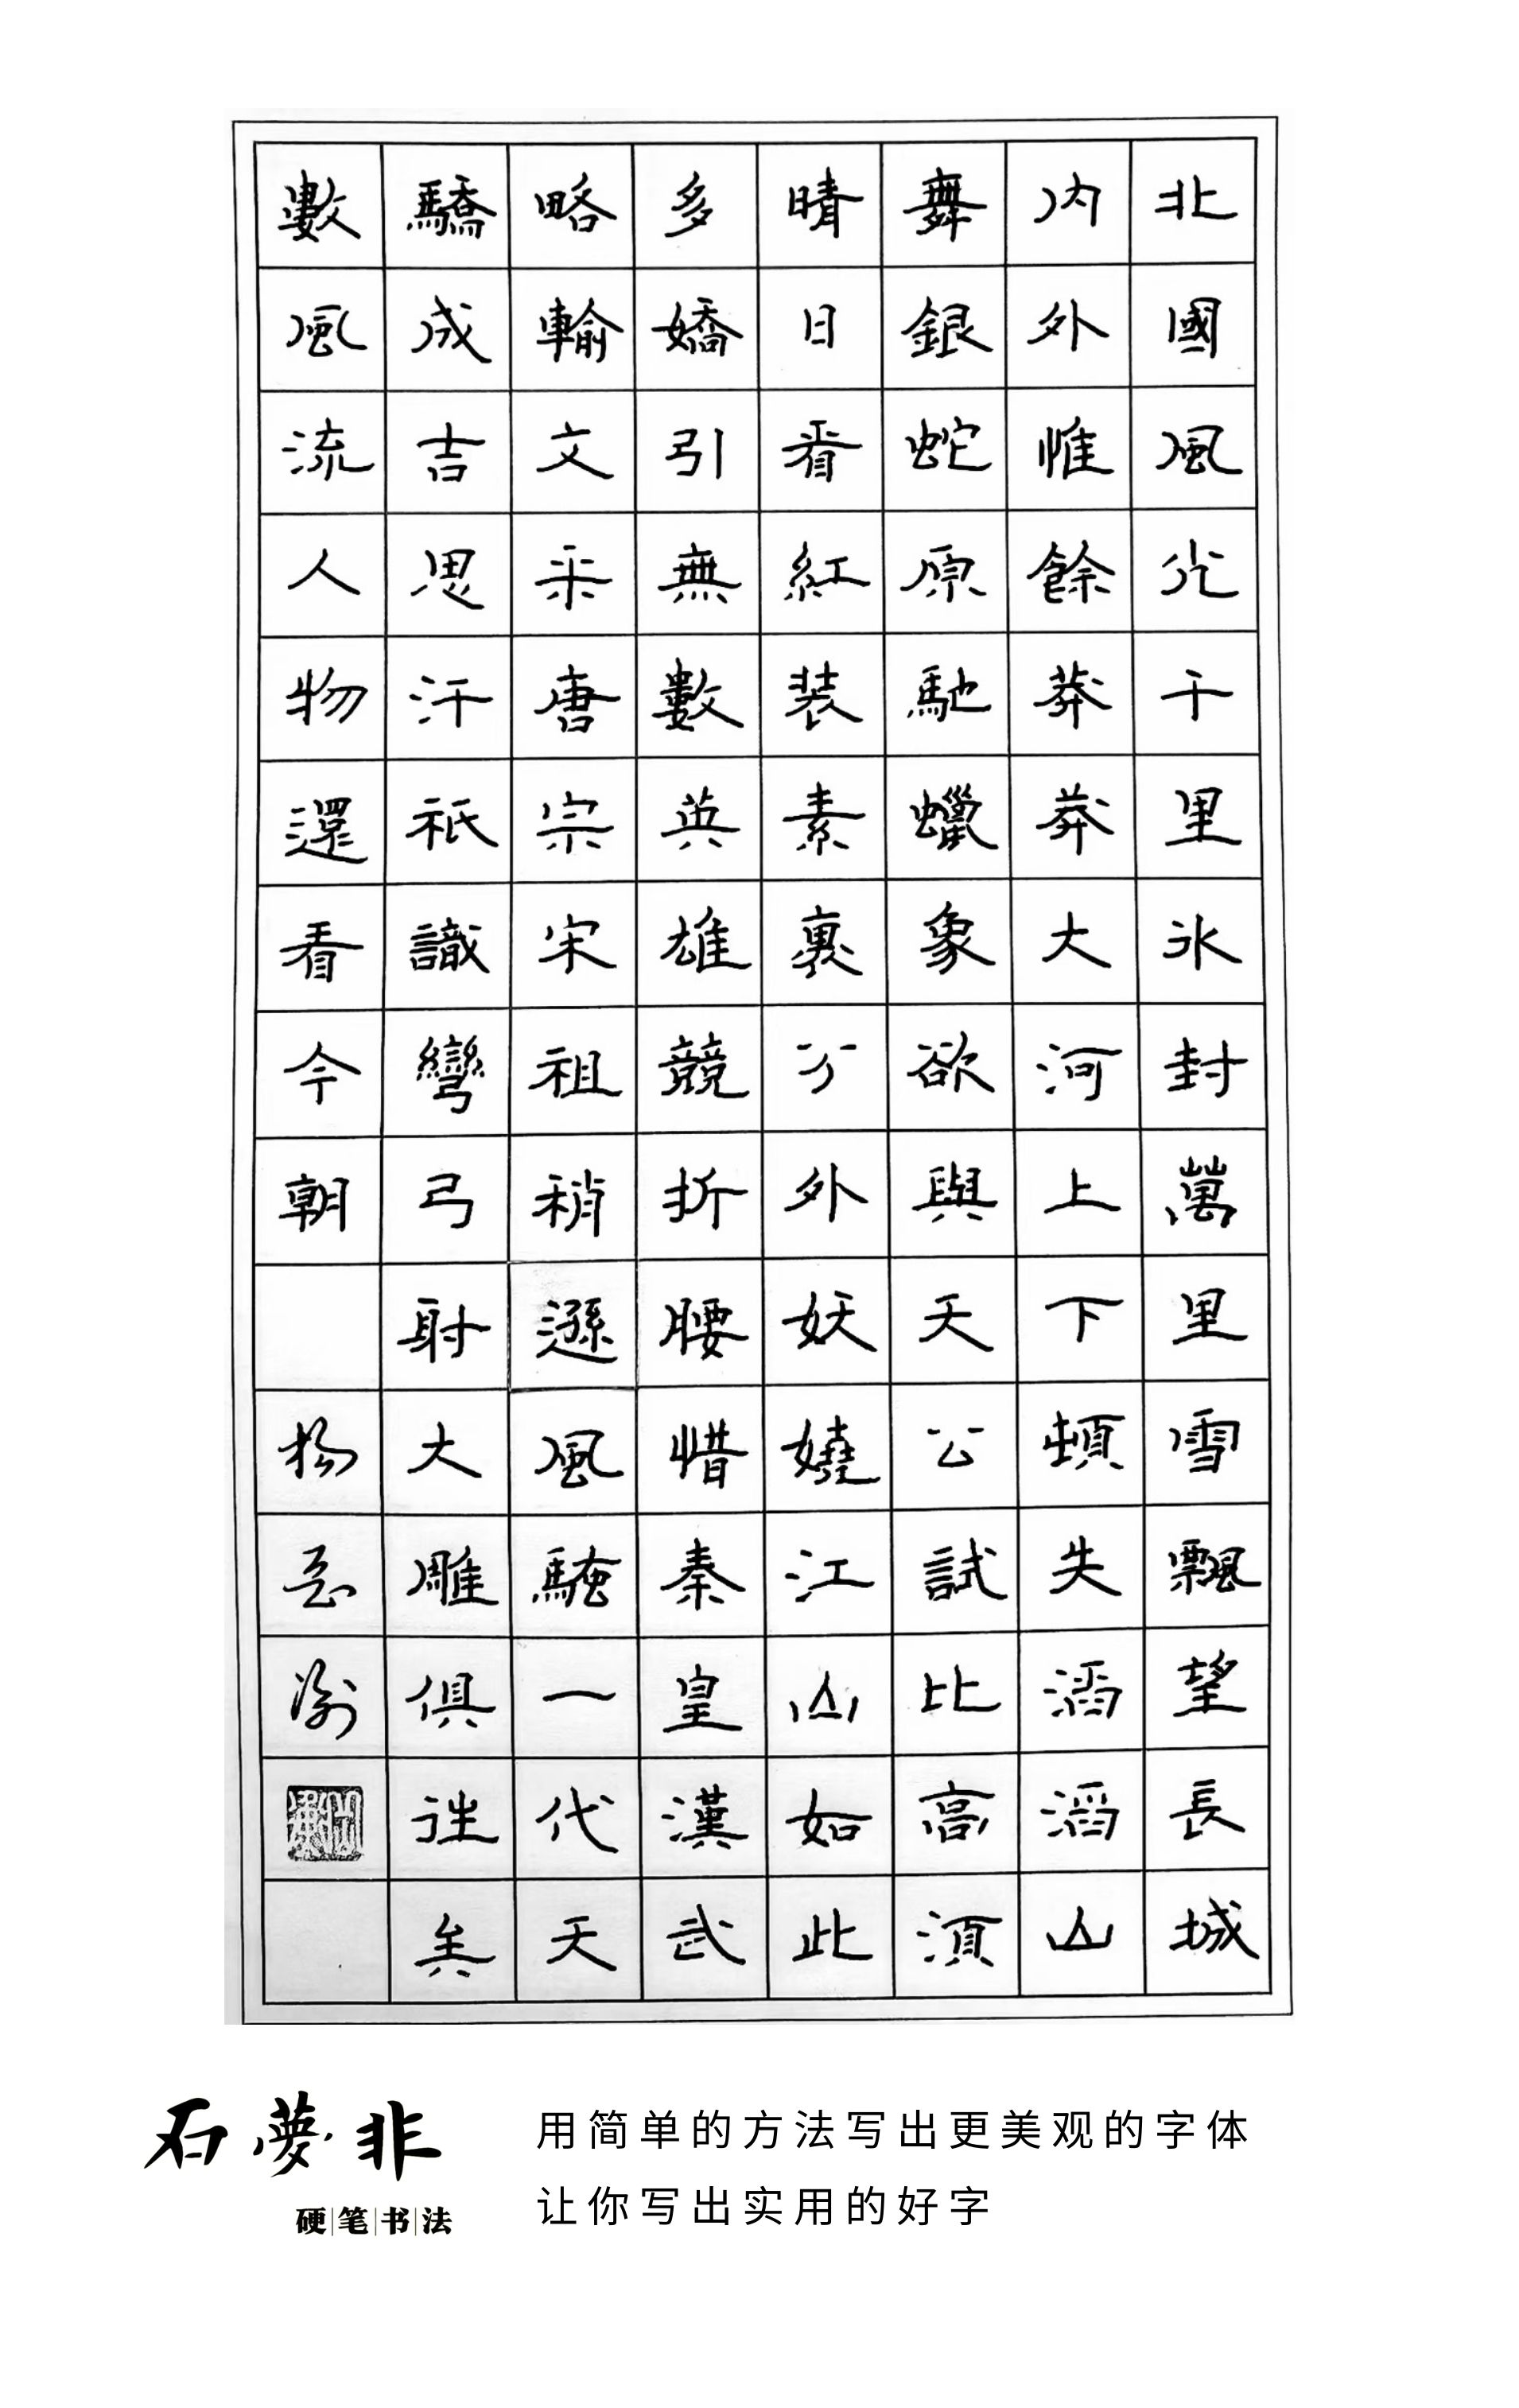 北國風光千里冰封萬里雪飄望長城
内外惟餘莽莽大河上下頓失滔滔山
舞銀蛇原馳蠟象欲與天公試比高須
晴日看紅装素裹分外妖嬈江山如此
多嬌引無數英雄競折腰惜秦皇漢武
略輸文采唐宗宋祖稍遜風騷一代天
驕成吉思汗祇識彎弓射大雕俱往矣
數風流人物還看今朝
石夢非
硬笔书法
用简单的方法写出更美观的字体
让你写出实用的好字